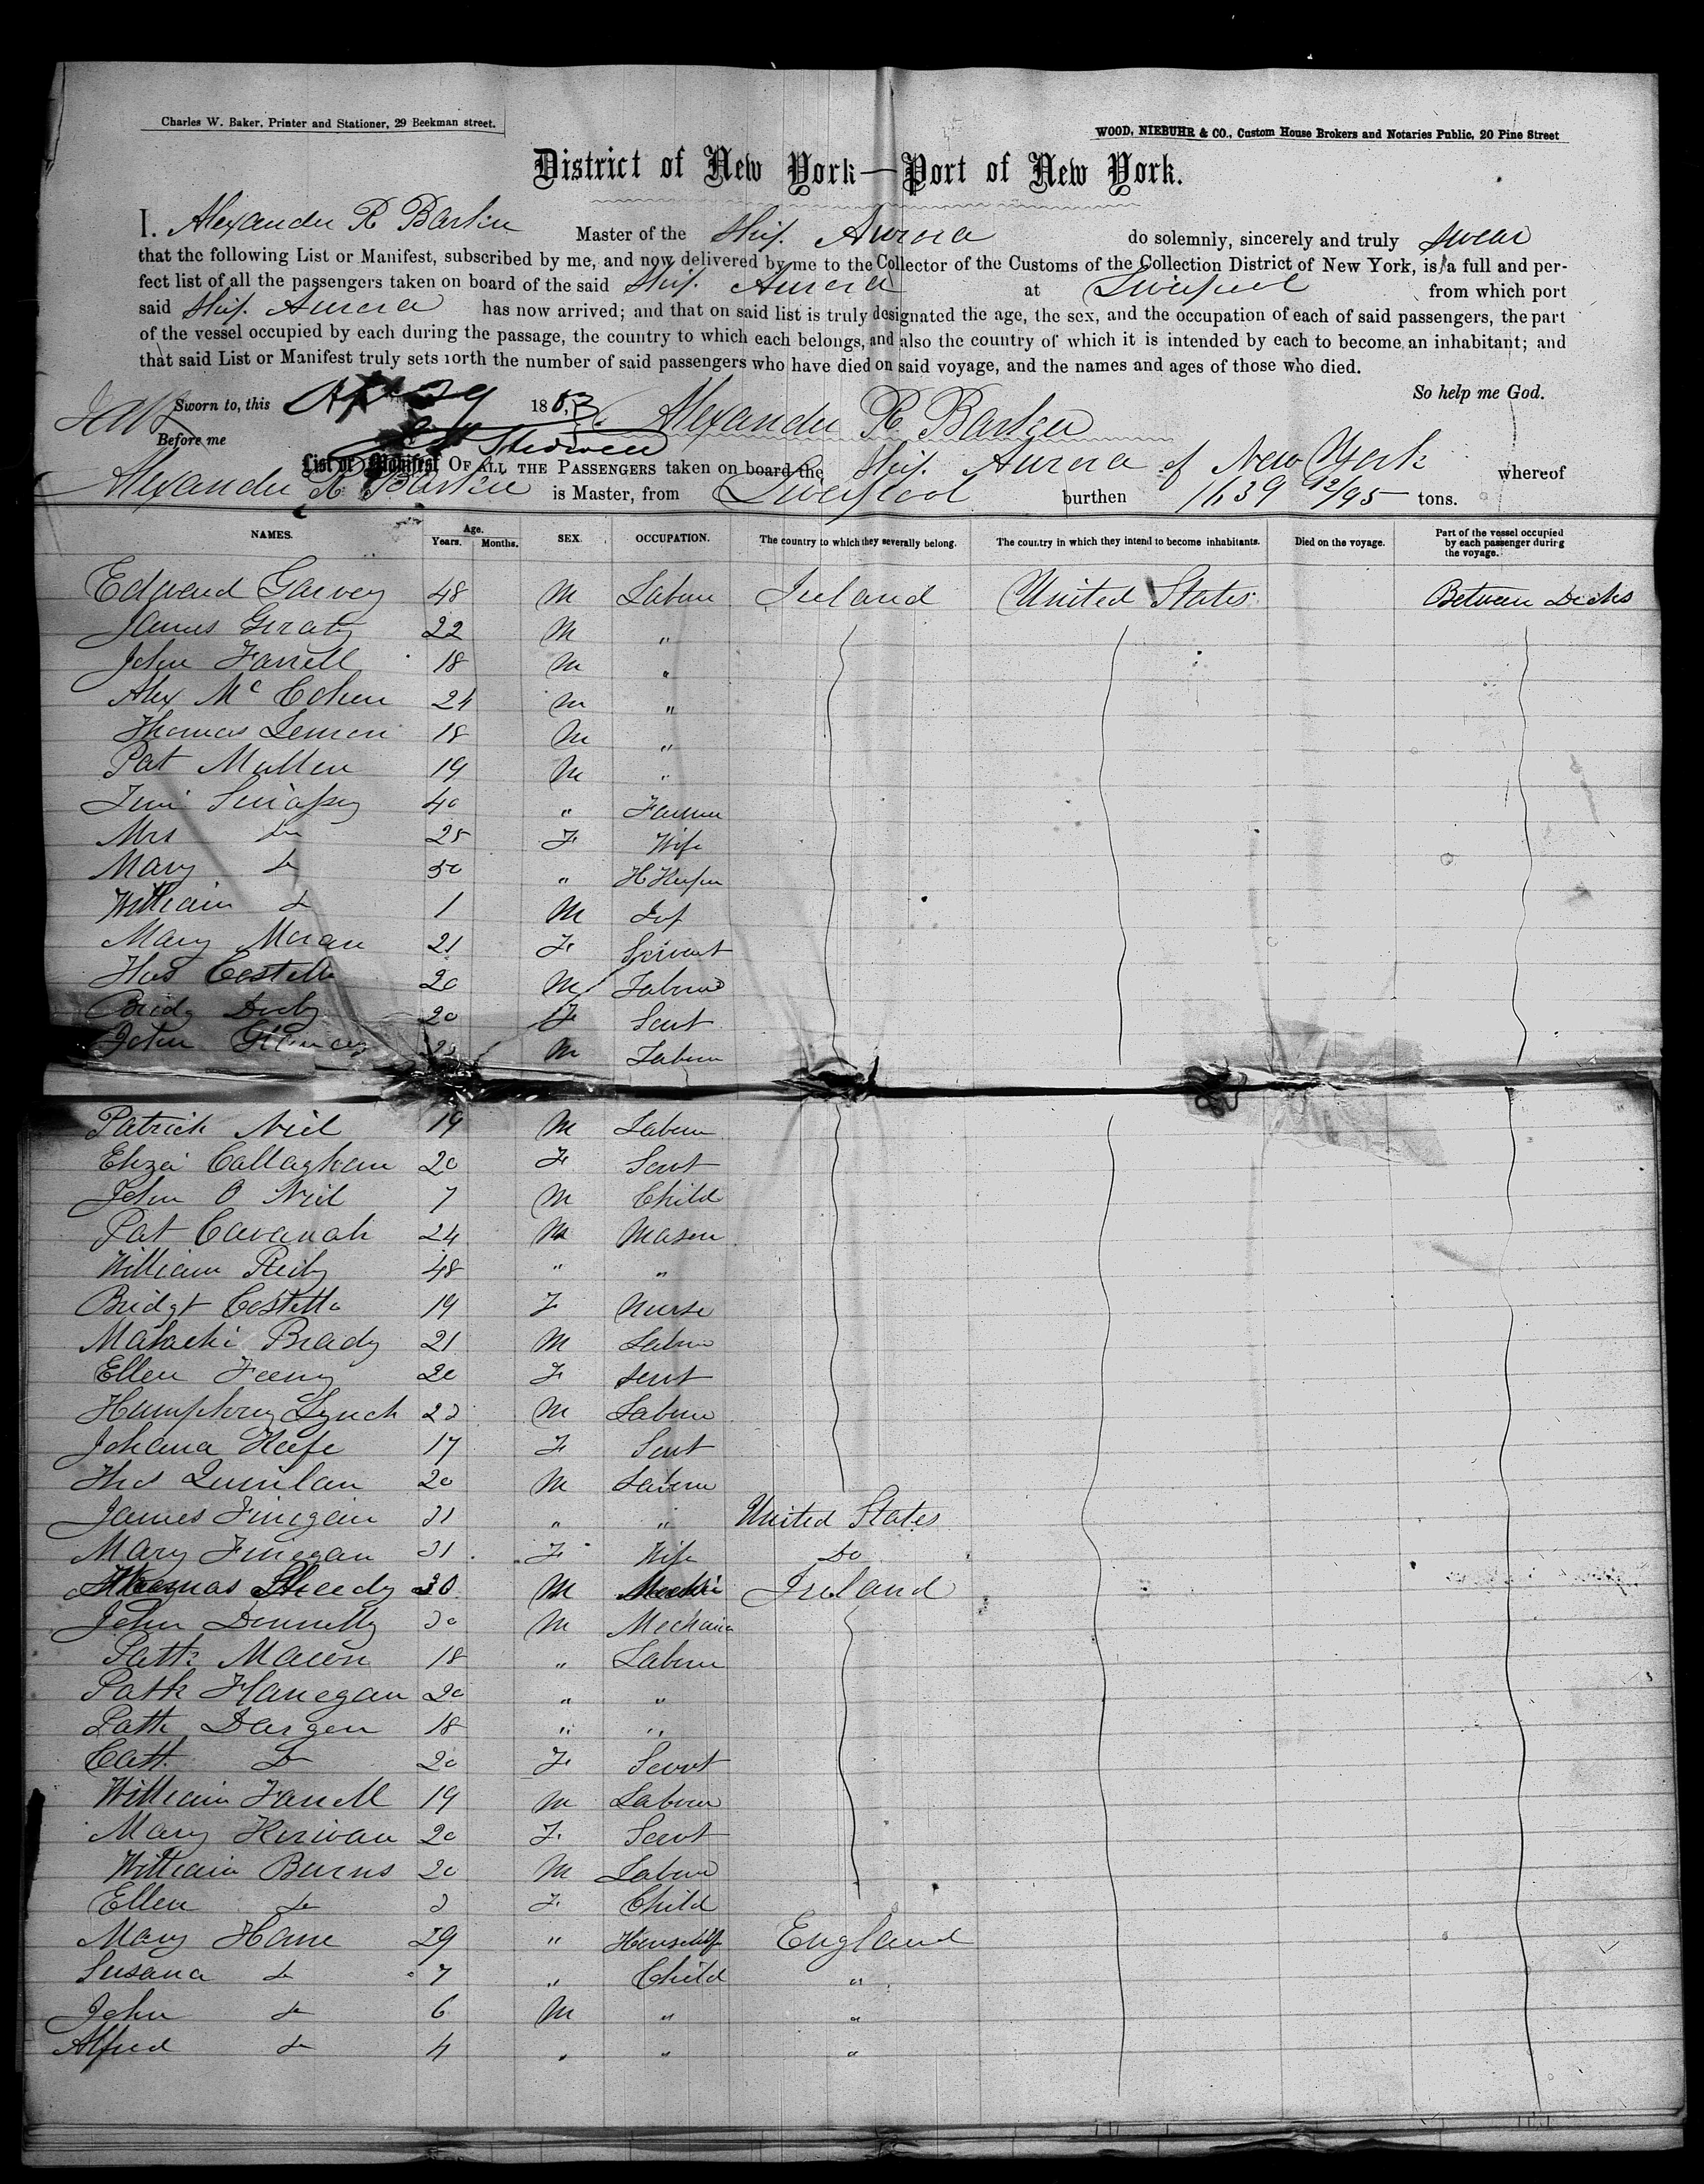 Charles W. Baker, Printer and Stationer, 29 Beekman street.
WOOD, NIEBUHR & CO., Custom House Brokers and Notaries Public, 20 Pine Street
District of New York—Port of New York.
I. Alexander R Barker Master of the Ship. Aurora do solemnly, sincerely and truly swear
that the following List or Manifest, subscribed by me, and now delivered by me to the Collector of the Customs of the Collection District of New York, is a full and per-
fect list of all the passengers taken on board of the said Ship. Aurora at Liverpool from which port
said Ship. Aurora has now arrived; and that on said list is truly designated the age, the sex, and the occupation of each of said passengers, the part
of the vessel occupied by each during the passage, the country to which each belongs, and also the country of which it is intended by each to become an inhabitant; and
that said List or Manifest truly sets forth the number of said passengers who have died on said voyage, and the names and ages of those who died.
So help me God.
Sworn to, this 29 1863. Alexander R Barker
Before me
List or Manifest OF ALL THE PASSENGERS taken on board the Ship. Aurora of New York whereof
Alexander R Barker is Master, from Liverpool burthen 1639 12/95 tons.
NAMES. Age. Years. Months. SEX. OCCUPATION. The country to which they severally belong. The country in which they intend to become inhabitants. Died on the voyage. Part of the vessel occupied by each passenger during the voyage.
Edward Garvey 48 M Labour Ireland United States Between Decks
James Geraty 22 M "
John Farrell 18 M "
Alex Mc 24 M "
Thomas Lemon 18 M "
Pat Mullen 19 M "
40 " Farmer
Mrs Do 25 F Wife
Mary Do 50 " H Keeper
William Do 1 M Inf
Mary Moran 21 F Servant
Thos Costello 20 M Labour
Bridg 20 F Servt
John M Labour
Patrick Neil 19 M Labour
Eliza Callaghan 20 F Servt
John O Neil 7 M Child
Pat Cavanah 24 M Mason
William Reily 48 " "
Bridgt Costello 19 F Nurse
Malachi Brady 21 M Labour
Ellen Feeny 20 F Servt
Humphrey Lynch 23 M Labour
Johana Keefe 17 F Servt
Thos Quinlan 20 M Labour
James Finegan 31 " " United States
Mary Finegan 31 F Wife Do
Thomas Sheedy 30 M Mechanic Ireland
John Donnelly 30 M Mechanic
Patk 18 " Labour
Patk Flanegan 20 " "
Patk Dargen 18 " "
Cath. Do 20 F Servt
William Farrell 19 M Labour
Mary Kirwan 20 F Servt
William Burns 20 M Labour
Ellen Do 3 F Child
Mary Hane 29 " Housewife England
Susana Do 7 " Child "
John Do 6 M " "
Alfred Do 4 " " "